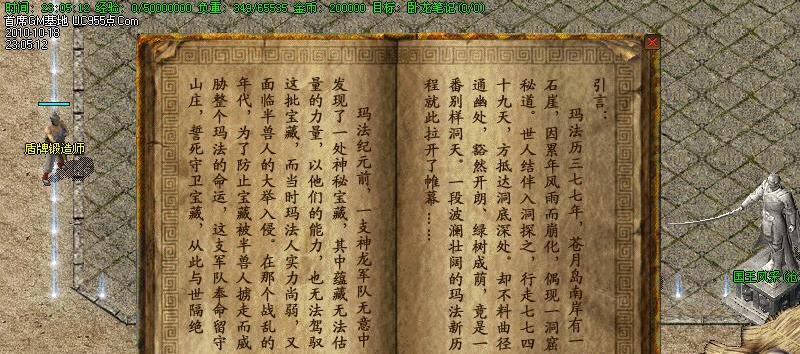 时间: 23:05:12 经验: 0/50000000 负重: 349/65535 金币: 200000 目标: 卧龙笔记(0/0)
首席GM基地 UC955点Com
2010-10-18
23:05:12
盾牌锻造师
引言：
玛法历三七七年，苍月岛南岸有一
石崖，因累年风雨而崩化，偶现一洞窟
秘道。世人结伴入洞探之，行走七七四
十九天，方抵达洞底深处。却不料曲径
通幽处，豁然开朗、绿树成荫，竟是一
番别样洞天。一段波澜壮阔的玛法新历
程就此拉开了帷幕……
玛法纪元前，一支神龙军队无意中
发现了一处神秘宝藏，其中蕴藏无法估
量的力量，以他们的能力，也无法驾驭
这批宝藏，而当时玛法人实力尚弱，又
面临半兽人的大举入侵。在那个战乱的
年代，为了防止宝藏被半兽人掳走而威
胁整个玛法的命运，这支军队奉命留守
山庄，誓死守卫宝藏，从此与世隔绝
国王风采